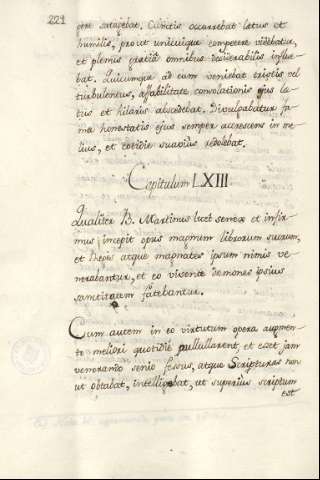 221
ore satagebat. Cunctis occurrebat letus et
humilis, prout unicuique competere videbatur,
et plenus gratiâ omnibus venerabilis influe-
bat. Quicumque ad eum veniebat tristis vel
turbulentus, affabilitate consolationis ejus læ-
tus et hilaris abscedebat. Divulgabatur fa-
ma honestatis ejus semper accrescens in me-
lius, et cotidie suavius redolebat.
Capitulum LXIII
Qualiter B. Martinus licet senex et infir-
mus incepit opus magnum librorum suorum,
et Reges atque magnates ipsum nimis ve-
nerabantur, et eo vivente demones ipsius
sanctitatem fatebantur.
Cum autem in eo virtutum opera augmen-
to meliori quotidiè pullullarent, et esset jam
venerando senio fessus, atque Scripturas non
ut optabat, intelligebat, ut superius scriptum
est